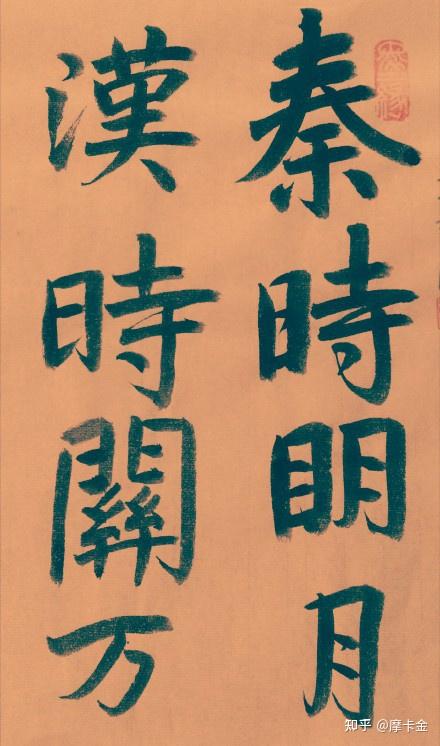 秦時明月
漢時關万
知乎 @摩卡金